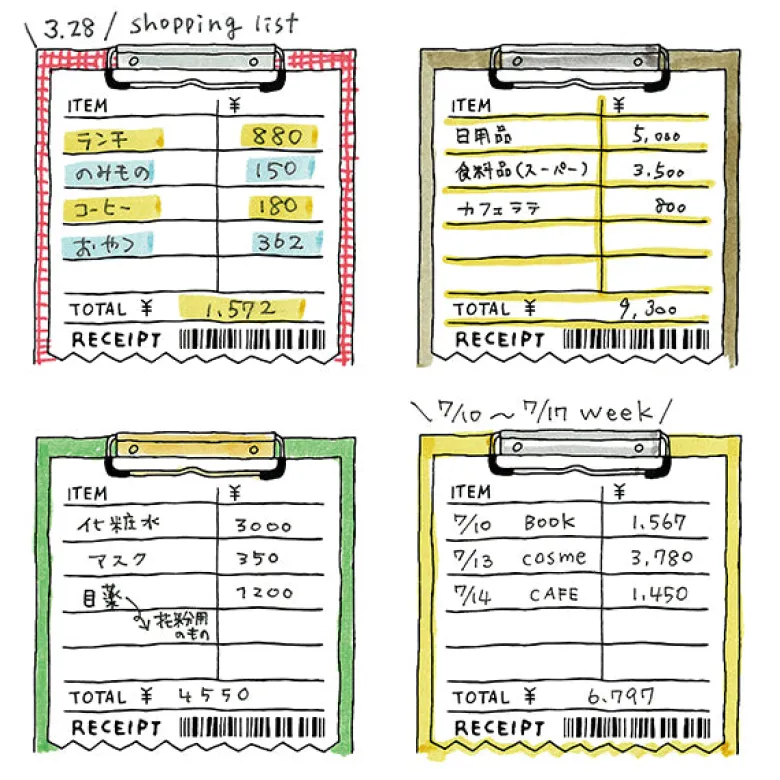 3.28 / shopping list
ITEM ¥
ランチ 880
のみもの 150
コーヒー 180
おやつ 362
TOTAL ¥ 1,572
RECEIPT
ITEM ¥
日用品 5,000
食料品(スーパー) 3,500
カフェラテ 800
TOTAL ¥ 9,300
RECEIPT
ITEM ¥
化粧水 3000
マスク 350
目薬 1200
花粉用
のもの
TOTAL ¥ 4550
RECEIPT
\ 7/10 〜 7/17 week /
ITEM ¥
7/10 BOOK 1,567
7/13 cosme 3,780
7/14 CAFE 1,450
TOTAL ¥ 6,797
RECEIPT